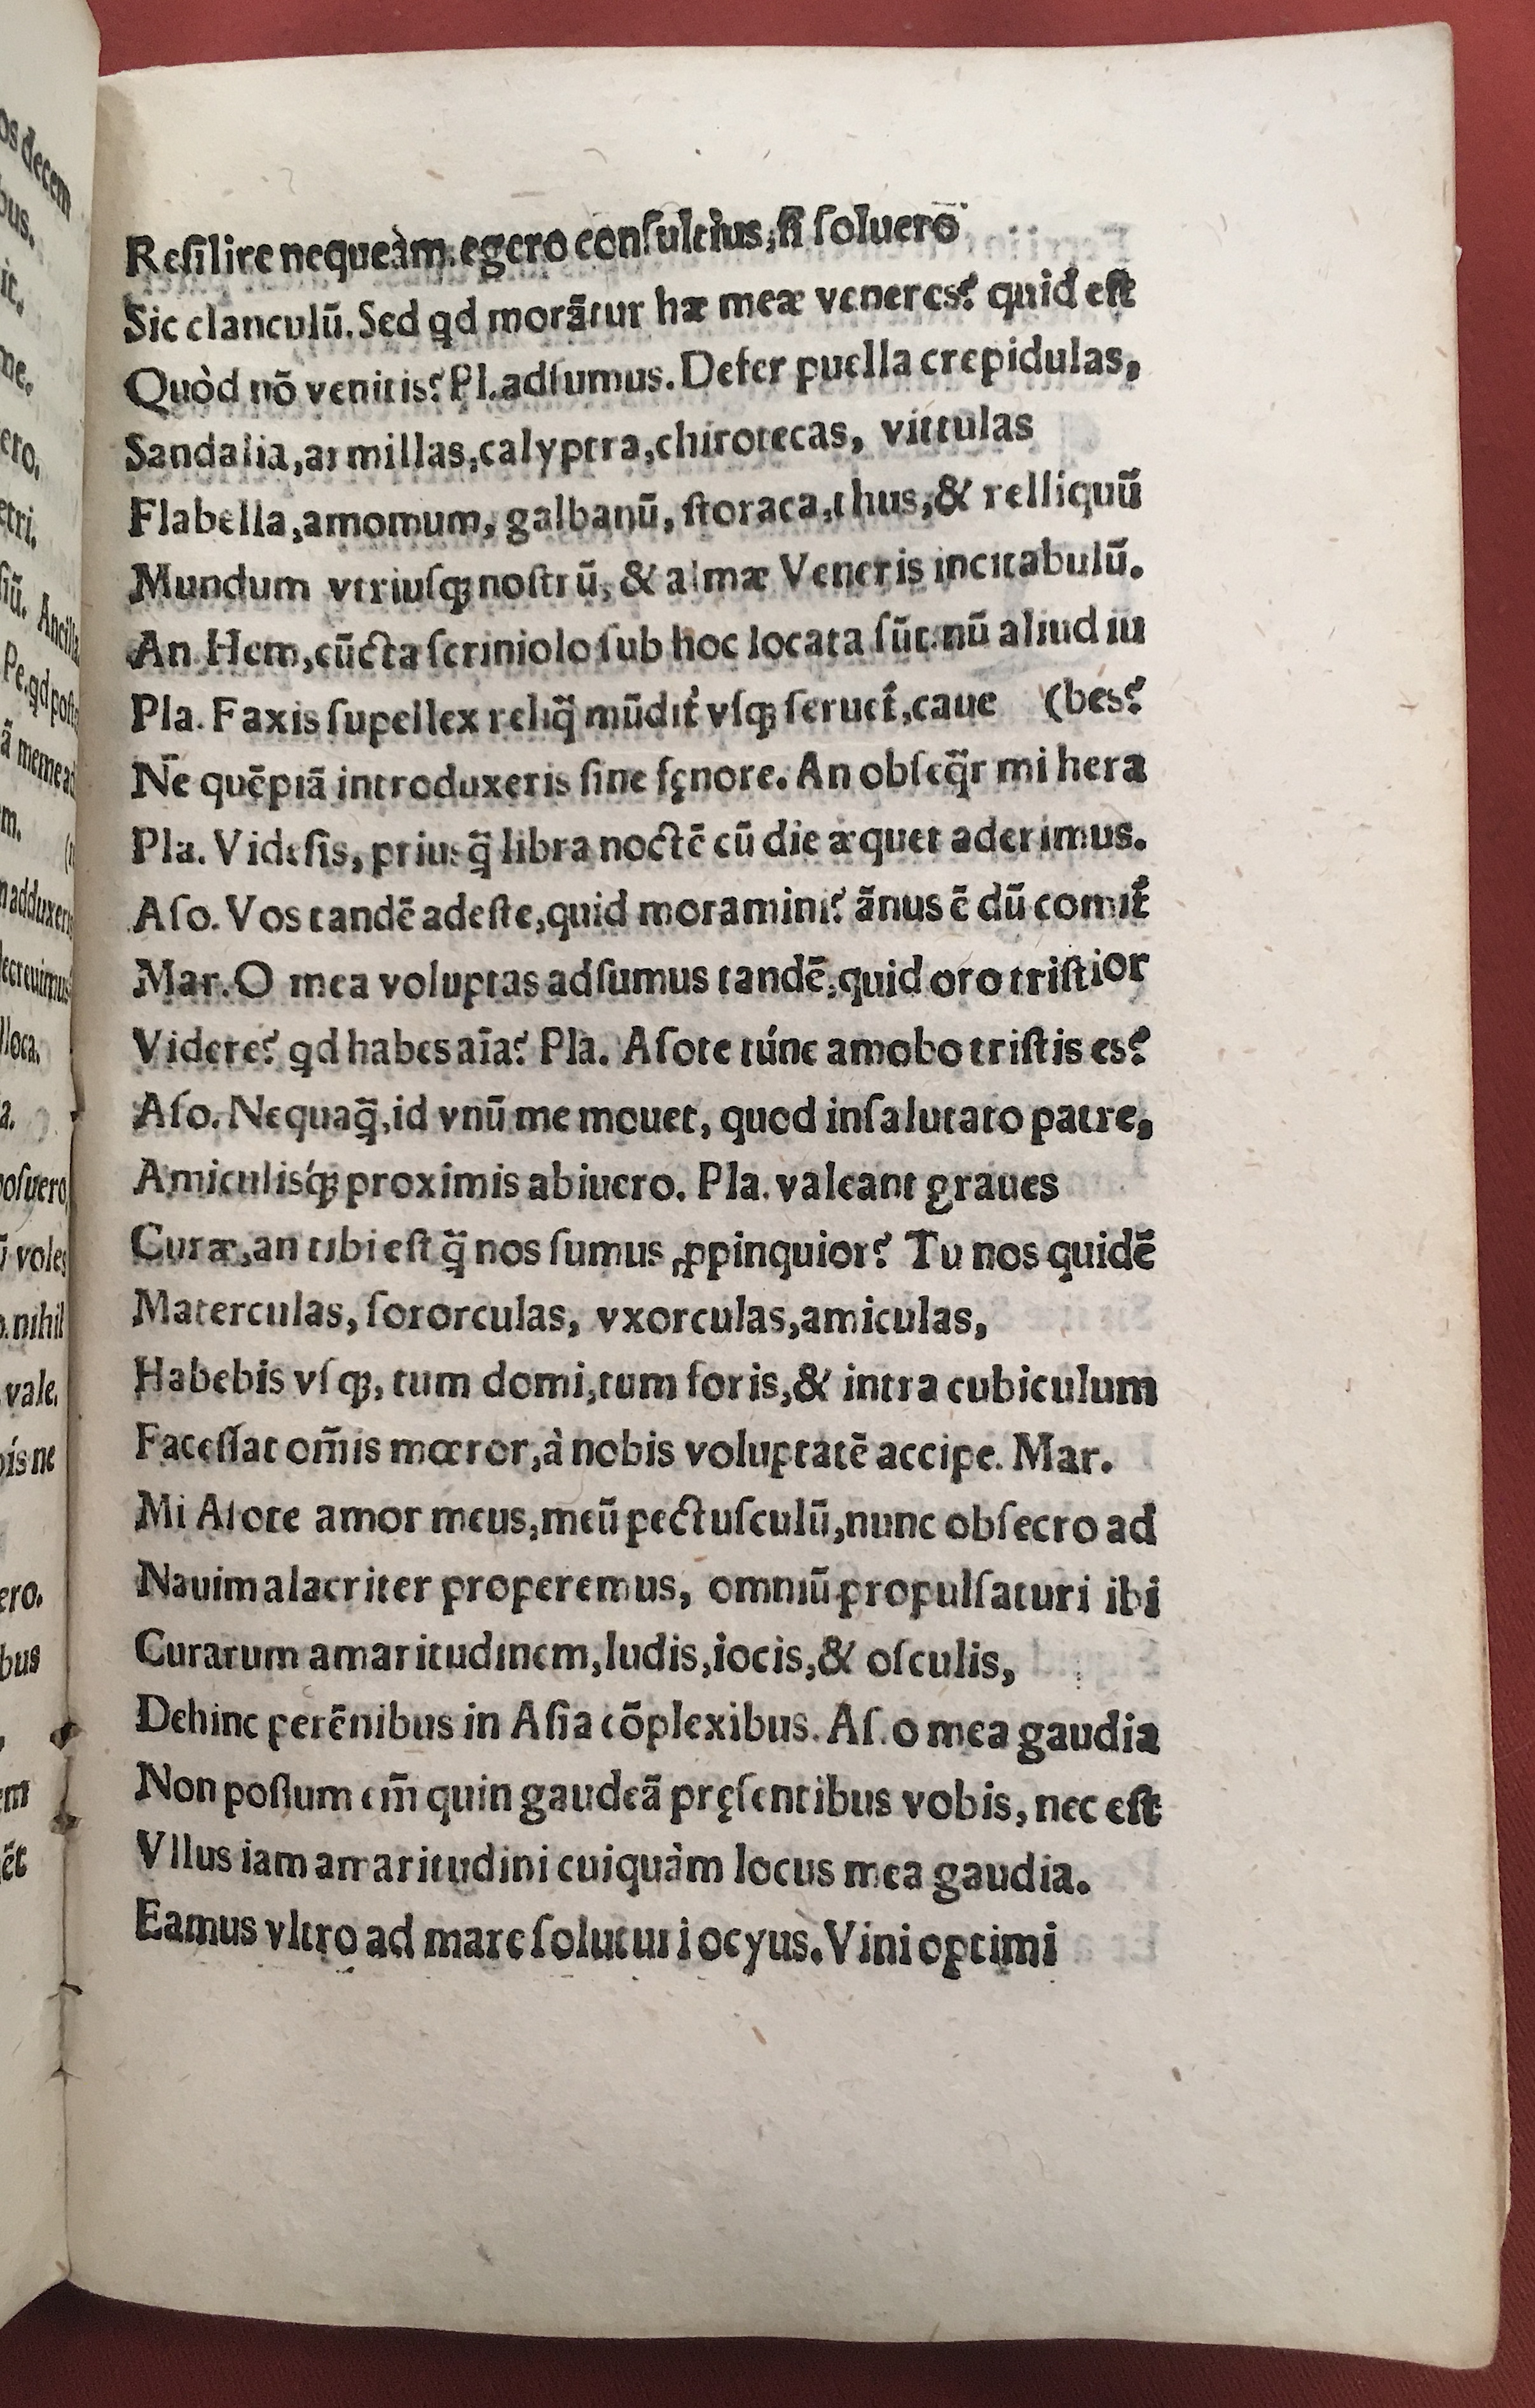 Resilire nequeàm. egero consultius, si soluero
Sic clanculū. Sed qd morātur hæ meæ veneres? quid est
Quòd nō venitis? Pl. adsumus. Defer puella crepidulas,
Sandalia, armillas, calyptra, chirotecas, vittulas
Flabella, amomum, galbanū, storaca, thus, & relliquū
Mundum vtriusqꝫ nostrū, & almæ Veneris incitabulū.
An. Hem, cūcta scriniolo sub hoc locata sūt. nū aliud iu
Pla. Faxis supellex reliq̄ mūdit᷑ vsqꝫ seruet᷑, caue (bes?
Ne quēpiā introduxeris sine fęnore. An obseq̄r mi hera
Pla. Videsis, priusq̄ libra noctē cū die æquet aderimus.
Aso. Vos tandē adeste, quid moramini? ānus ē dū comit᷑
Mar. O mea voluptas adsumus tandē, quid oro tristior
Videre? qd habes aīa? Pla. Asote túnc amobo tristis es?
Aso. Nequaq̄, id vnū me mouet, quod insalutato patre,
Amiculisq́ꝫ proximis abiuero. Pla. valeant graues
Curæ, an tibi est q̄ nos sumus ꝓpinquior? Tu nos quidē
Materculas, sororculas, vxorculas, amiculas,
Habebis vsqꝫ, tum domi, tum foris, & intra cubiculum
Facessat om̄is mœror, à nobis voluptatē accipe. Mar.
Mi Asote amor meus, meū pectusculū, nunc obsecro ad
Nauim alacriter properemus, omniū propulsaturi ibi
Curarum amaritudinem, ludis, iocis, & osculis,
Dehinc perēnibus in Asia cōplexibus. As. o mea gaudia
Non possum em̄ quin gaudeā pręsentibus vobis, nec est
Vllus iam amaritudini cuiquàm locus mea gaudia.
Eamus vltro ad mare soluturi ocyus. Vini optimi